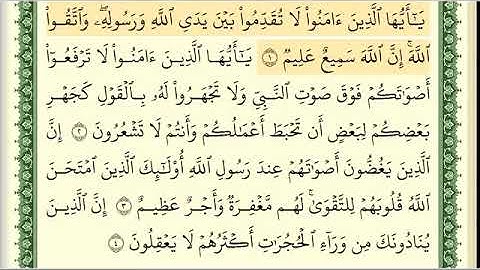 يَـٰٓأَيُّهَا ٱلَّذِينَ ءَامَنُوا۟ لَا تُقَدِّمُوا۟ بَيْنَ يَدَىِ ٱللَّهِ وَرَسُولِهِۦ ۖ وَٱتَّقُوا۟
ٱللَّهَ ۚ إِنَّ ٱللَّهَ سَمِيعٌ عَلِيمٌ ١ يَـٰٓأَيُّهَا ٱلَّذِينَ ءَامَنُوا۟ لَا تَرْفَعُوٓا۟
أَصْوَٰتَكُمْ فَوْقَ صَوْتِ ٱلنَّبِىِّ وَلَا تَجْهَرُوا۟ لَهُۥ بِٱلْقَوْلِ كَجَهْرِ
بَعْضِكُمْ لِبَعْضٍ أَن تَحْبَطَ أَعْمَـٰلُكُمْ وَأَنتُمْ لَا تَشْعُرُونَ ٢ إِنَّ
ٱلَّذِينَ يَغُضُّونَ أَصْوَٰتَهُمْ عِندَ رَسُولِ ٱللَّهِ أُو۟لَـٰٓئِكَ ٱلَّذِينَ ٱمْتَحَنَ
ٱللَّهُ قُلُوبَهُمْ لِلتَّقْوَىٰ ۚ لَهُم مَّغْفِرَةٌ وَأَجْرٌ عَظِيمٌ ٣ إِنَّ ٱلَّذِينَ
يُنَادُونَكَ مِن وَرَآءِ ٱلْحُجُرَٰتِ أَكْثَرُهُمْ لَا يَعْقِلُونَ ٤